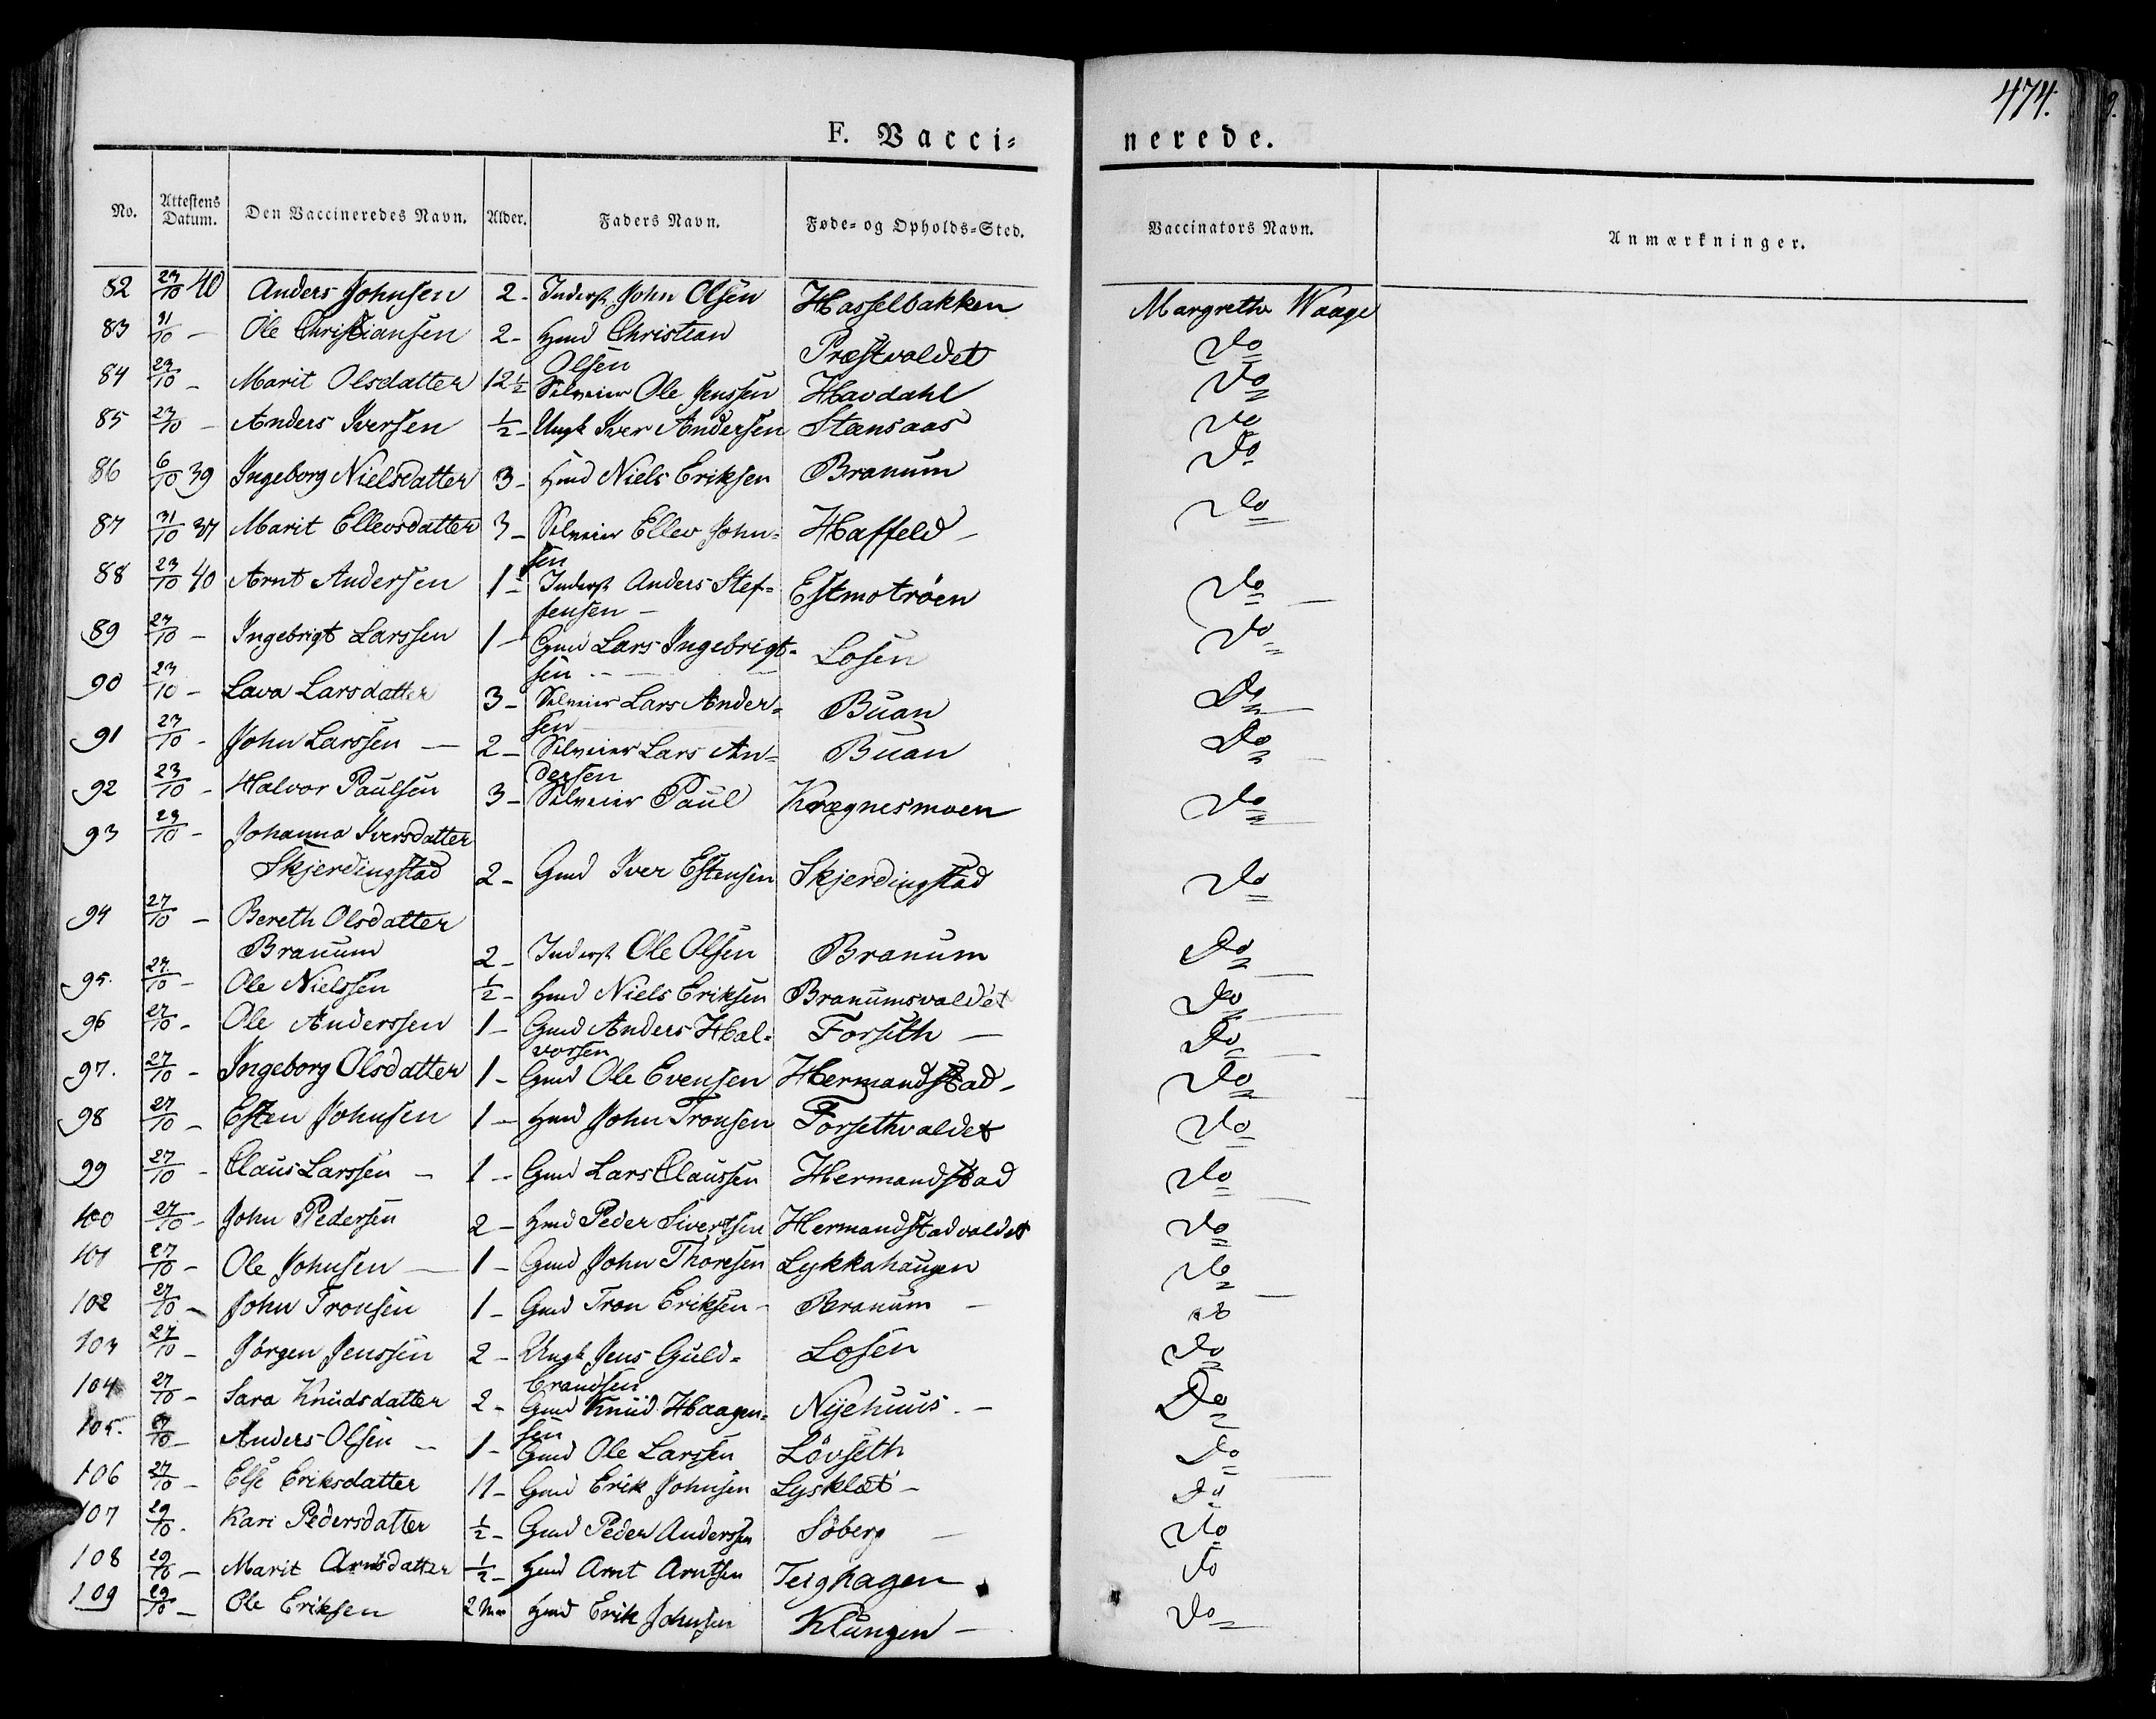 474.
F. Vacci= nerede.
No. Attestens Datum. Den Vaccineredes Navn. Alder. Faders Navn. Føde= og Opholds=Sted. Vaccinators Navn. Anmærkninger.
82 23/10 40 Anders Johnsen 2 - Inderst John Olsen Hasselbakken Margrethe Waage
83 31/10 - Ole Christiansen 2 - Hmd Christian Olsen Præstvaldet Do
84 23/10 - Marit Olsdatter 12½ Selveier Ole Jenssen Havdahl Do
85 23/10 - Anders Iversen ½ - Ungk Iver Andersen Stensaas Do
86 6/10 39 Ingeborg Nielsdatter 3 - Hmd Niels Eriksen Branum Do
87 31/10 37 Marit Ellevsdatter 3 - Selveier Ellev John=
sen Haffeld - Do
88 23/10 40 Arnt Andersen 1 - Inderst Anders Stef=
fensen - Estmotröen Do
89 27/10 - Ingebrigt Larssen 1 - Gmd Lars Ingebrigt=
sen Losen Do
90 23/10 - Lava Larsdatter 3 - Selveier Lars Ander=
sen Buan Do
91 23/10 - John Larssen - 2 - Selveier Lars An=
dersen Buan Do
92 23/10 - Halvor Paulsen 3 - Selveier Paul Krægnesmoen Do
93 23/10 - Johanna Iversdatter
Skjerdingstad 2 - Gmd Iver Estensen Skjerdingstad Do
94 27/10 - Bereth Olsdatter
Branum 2 - Inderst Ole Olsen Branum Do
95. 27/10 - Ole Nielssen ½ - Hmd Niels Eriksen Branumsvaldet Do
96 27/10 - Ole Anderssen 1 - Gmd Anders Hal=
vorsen Forseth - Do
97. 27/10 - Ingeborg Olsdatter 1 - Gmd Ole Evensen Hermandstad - Do
98 27/10 - Esten Johnsen 1 - Hmd John Tronsen Forsethvaldet Do
99 27/10 - Claus Larssen - 1 - Gmd Lars Claussen Hermandstad Do
100 27/10 - John Pedersen 2 - Hmd Peder Sivertsen Hermandstadvaldet Do
101 27/10 - Ole Johnsen - 1 - Gmd John Thoresen Lykkahaugen Do
102 27/10 - John Tronsen 1 - Gmd Tron Eriksen - Branum - do
103 27/10 - Jörgen Jenssen 2 - Ungk Jens Guld=
brandsen Losen Do
104 27/10 - Sara Knudsdatter 2 - Gmd Knud Haagen=
sen Nyehuus. - Do
105. 27/10 - Anders Olsen - 1 - Gmd Ole Larssen Lövseth Do
106 27/10 - Else Eriksdatter 11 - Gmd Erik Johnsen Lysklæt - Do
107 29/10. Kari Pedersdatter ½ - Gmd Peder Anderssen Söberg - Do
108 29/10 - Marit Arntsdatter ½ - Hmd Arnt Arntsen Teighagen Do
109 29/10 - Ole Eriksen 2 Mr Hmd Erik Johnsen Klungen - Do